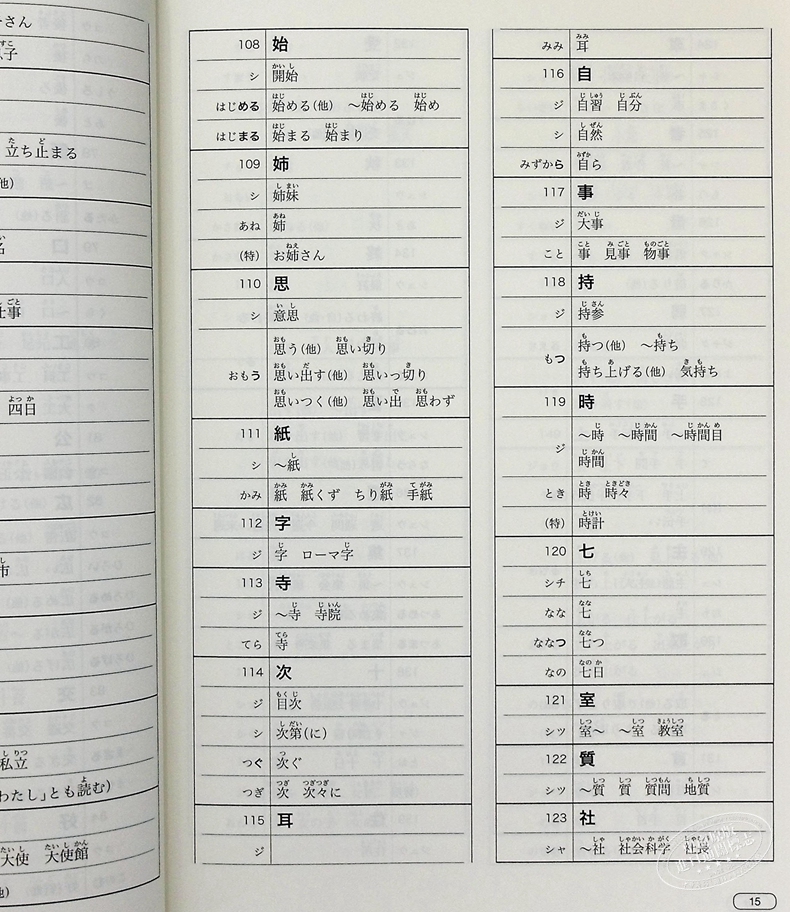 さん
子
立ち止まる
他)
名
仕事
四日
市
私立
わたし」とも読む)
大使 大使館
108 始
シ 開始
はじめる 始める(他) 〜始める 始め
はじまる 始まる 始まり
109 姉
シ 姉妹
あね 姉
(特) お姉さん
110 思
シ 意思
おもう 思う(他) 思い切り
思い出す(他) 思いっ切り
思いつく(他) 思い出 思わず
111 紙
シ 〜紙
かみ 紙 紙くず ちり紙 手紙
112 字
ジ 字 ローマ字
113 寺
ジ 〜寺 寺院
てら 寺
114 次
ジ 目次
シ 次第(に)
つぐ 次ぐ
つぎ 次 次々に
115 耳
ジ
みみ 耳
116 自
ジ 自習 自分
シ 自然
みずから 自ら
117 事
ジ 大事
こと 事 見事 物事
118 持
ジ 持参
もつ 持つ(他) 〜持ち
持ち上げる(他) 気持ち
119 時
ジ 〜時 〜時間 〜時間目
時間
とき 時 時々
(特) 時計
120 七
シチ 七
なな 七
ななつ 七つ
なの 七日
121 室
シツ 室〜 〜室 教室
122 質
シツ 〜質 質 質問 地質
123 社
シャ 〜社 社会科学 社長
15